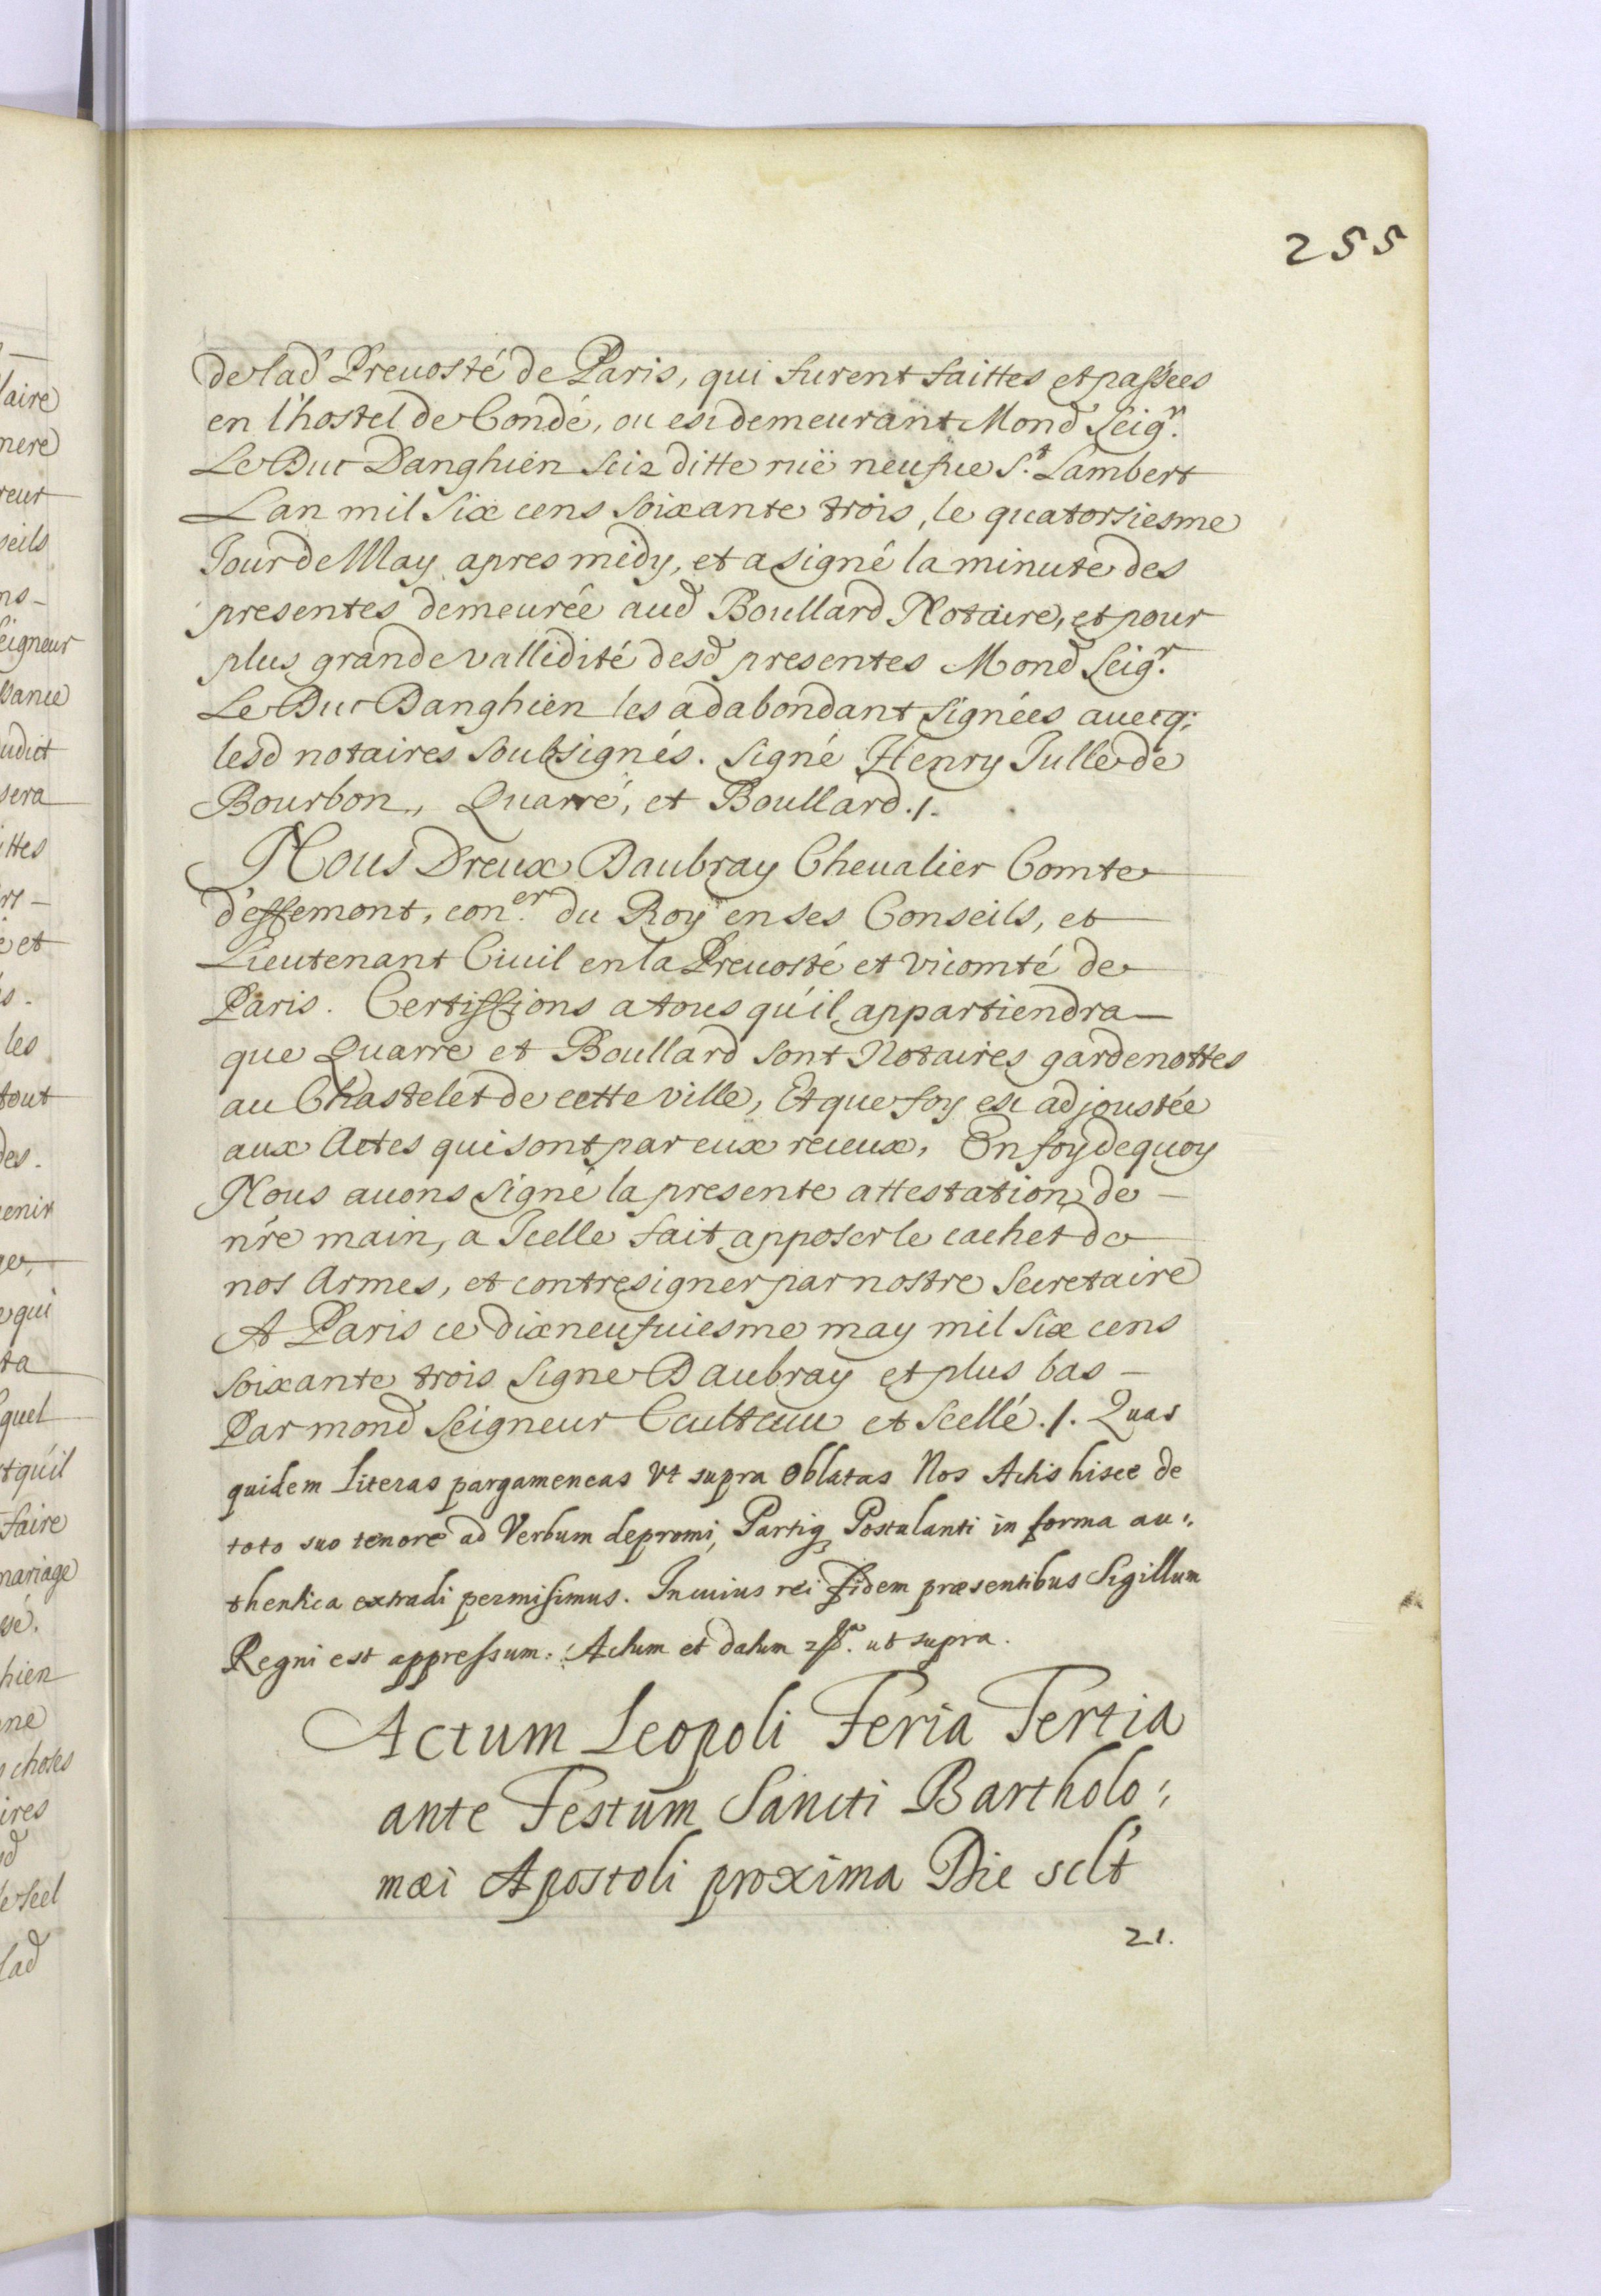 255
de lad Preuosté de Paris, qui furent faittes et passées
en l'hostel de Condé, ou est demeurant Mond Seigr.
Le Duc Danghien scis ditte ruë neufue S.t Lambert
Lan mil Six cens soixante trois, le quatorsiesme
Jour de May apres midy, et a signé la minute des
presentes demeurée aud Boullard Notaire, et pour
plus grande vallidité desd presentes Mond Seigr.
Le Duc Danghien les a dabondant signées auecq;
lesd notaires soubsignés. signé Henry Julle de
Bourbon, Quarré, et Boullard ./.
Nous Dreux Daubray Cheualier Comte
d'offemont, coner. du Roy en ses Conseils, et
Lieutenant Ciuil en la Preuosté et vicomté de
Paris. Certiffions a tous qu'il appartiendra
que Quarre et Boullard sont Notaires gardenottes
au Chastelet de cette ville, Et que foy est adjoustée
aux Actes qui sont par eux receux, En foy de quoy
Nous auons signé la presente attestation de
nre main, a Icelle fait apposer le cachet de
nos Armes, et contresigner par nostre Secretaire
A Paris ce dixneufuiesme may mil six cens
soixante trois signe Daubray et plus bas
Par mond Seigneur et scellé ./. Quas
quidem literas pargameneas Vt supra oblatas Nos Actis hisce de
toto suo tenore ad Verbum depromi, Partiq Postulanti in forma au:
thentica extradi permisimus. In cuius rei fidem præsentibus Sigillum
Regni est appressum. Actum et datum ut supra.
Actum Leopoli Feria Tertia
ante Festum Sancti Bartholo:
mæi Apostoli proxima Die sclt
21.
laire
mere
reur
seils
ns
eigneur
sance
udict
sera
ittes
et
les
tout
des.
enir
qui
ta
quel
t qu'il
faire
mariage
hien
ne
choses
ires
lad